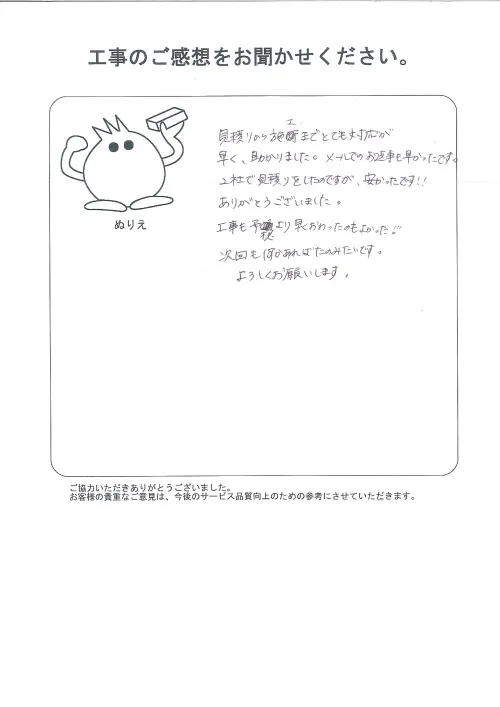 工事のご感想をお聞かせください。
見積りから施工までとても対応が
早く、助かりました。メールでのお返事も早かったです。
2社で見積りをしたのですが、安かったです!!
ありがとうございました。
工事も予定より早くおわったのもよかった!!
次回も何かあればたのみたいです。
よろしくお願いします。
ぬりえ
ご協力いただきありがとうございました。
お客様の貴重なご意見は、今後のサービス品質向上のための参考にさせていただきます。